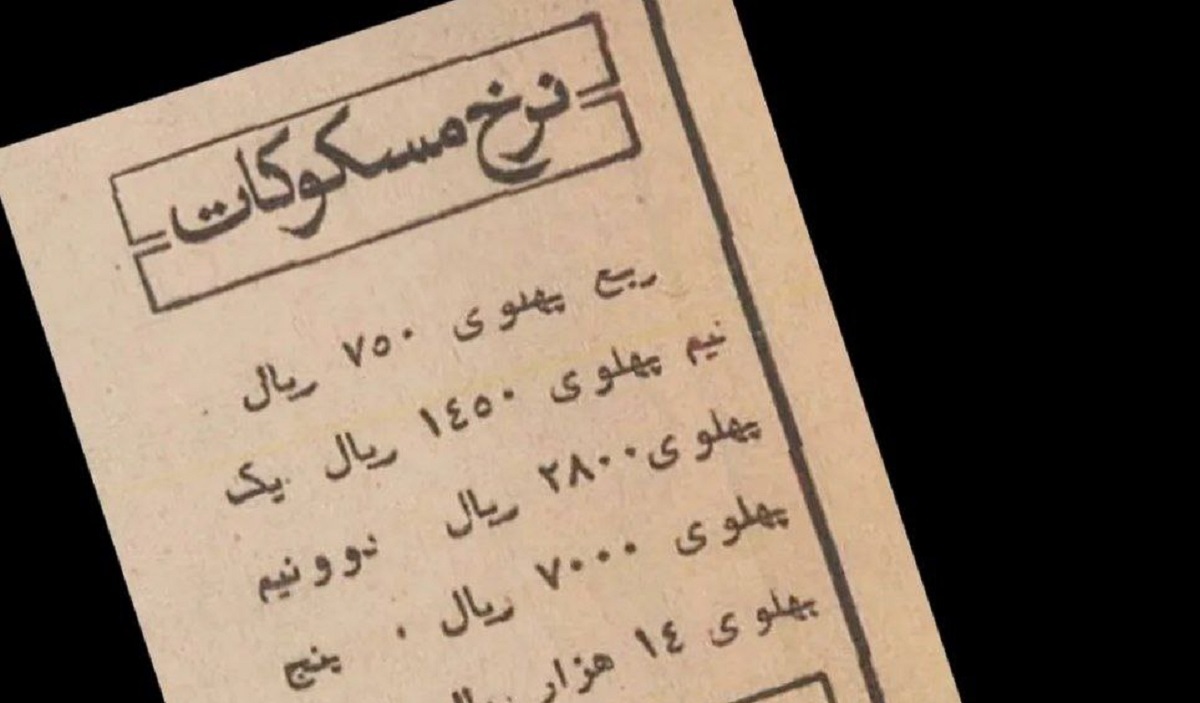 نرخ مسکوکات
ربع پهلوی ۷۵۰ ریال
نیم پهلوی ۱٤۵۰ ریال یک
پهلوی ۲۸۰۰ ریال دو و نیم
پهلوی ۷۰۰۰ ریال . پنج
پهلوی ۱٤ هزار ریال